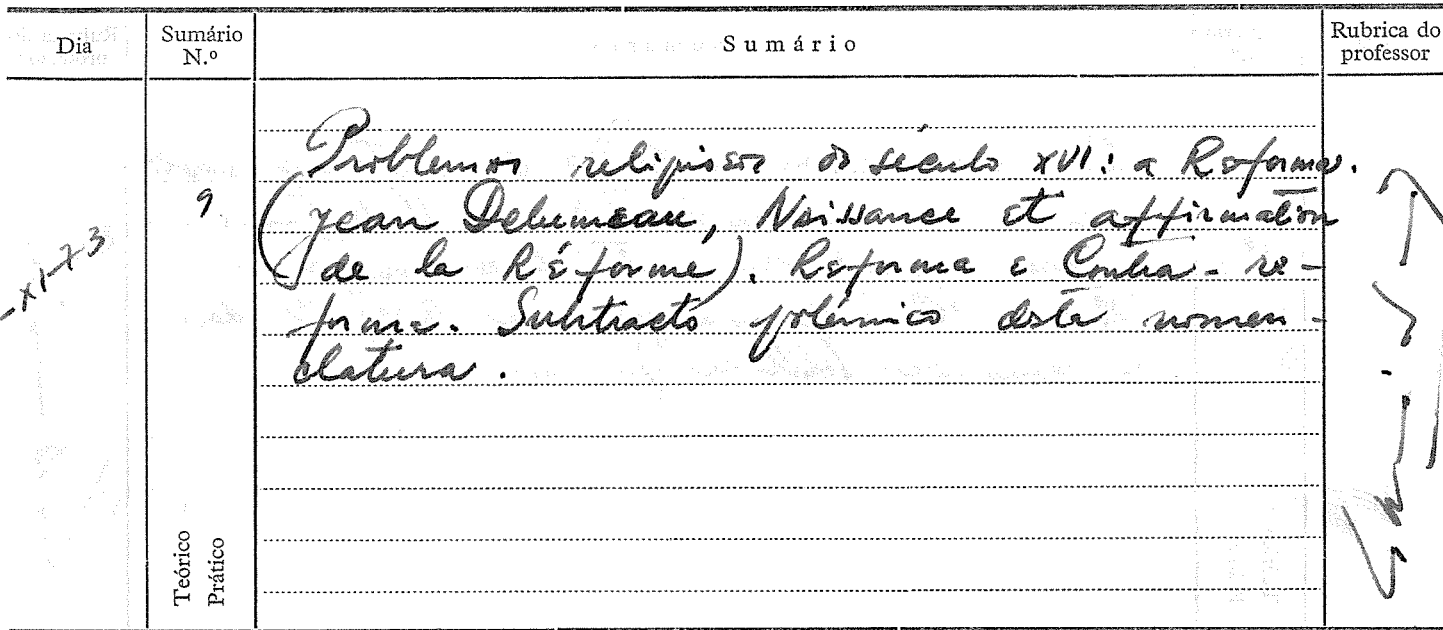 Dia
Sumário N.º
Sumário
Rubrica do professor
-XI-73
9
Problemas religiosos do século XVI: a Reforma.
(Jean Delumeau, Naissance et affirmation
de la Réforme). Reforma e Contra-re-
forma. Substracto polémico desta nomen-
clatura.
Teórico
Prático